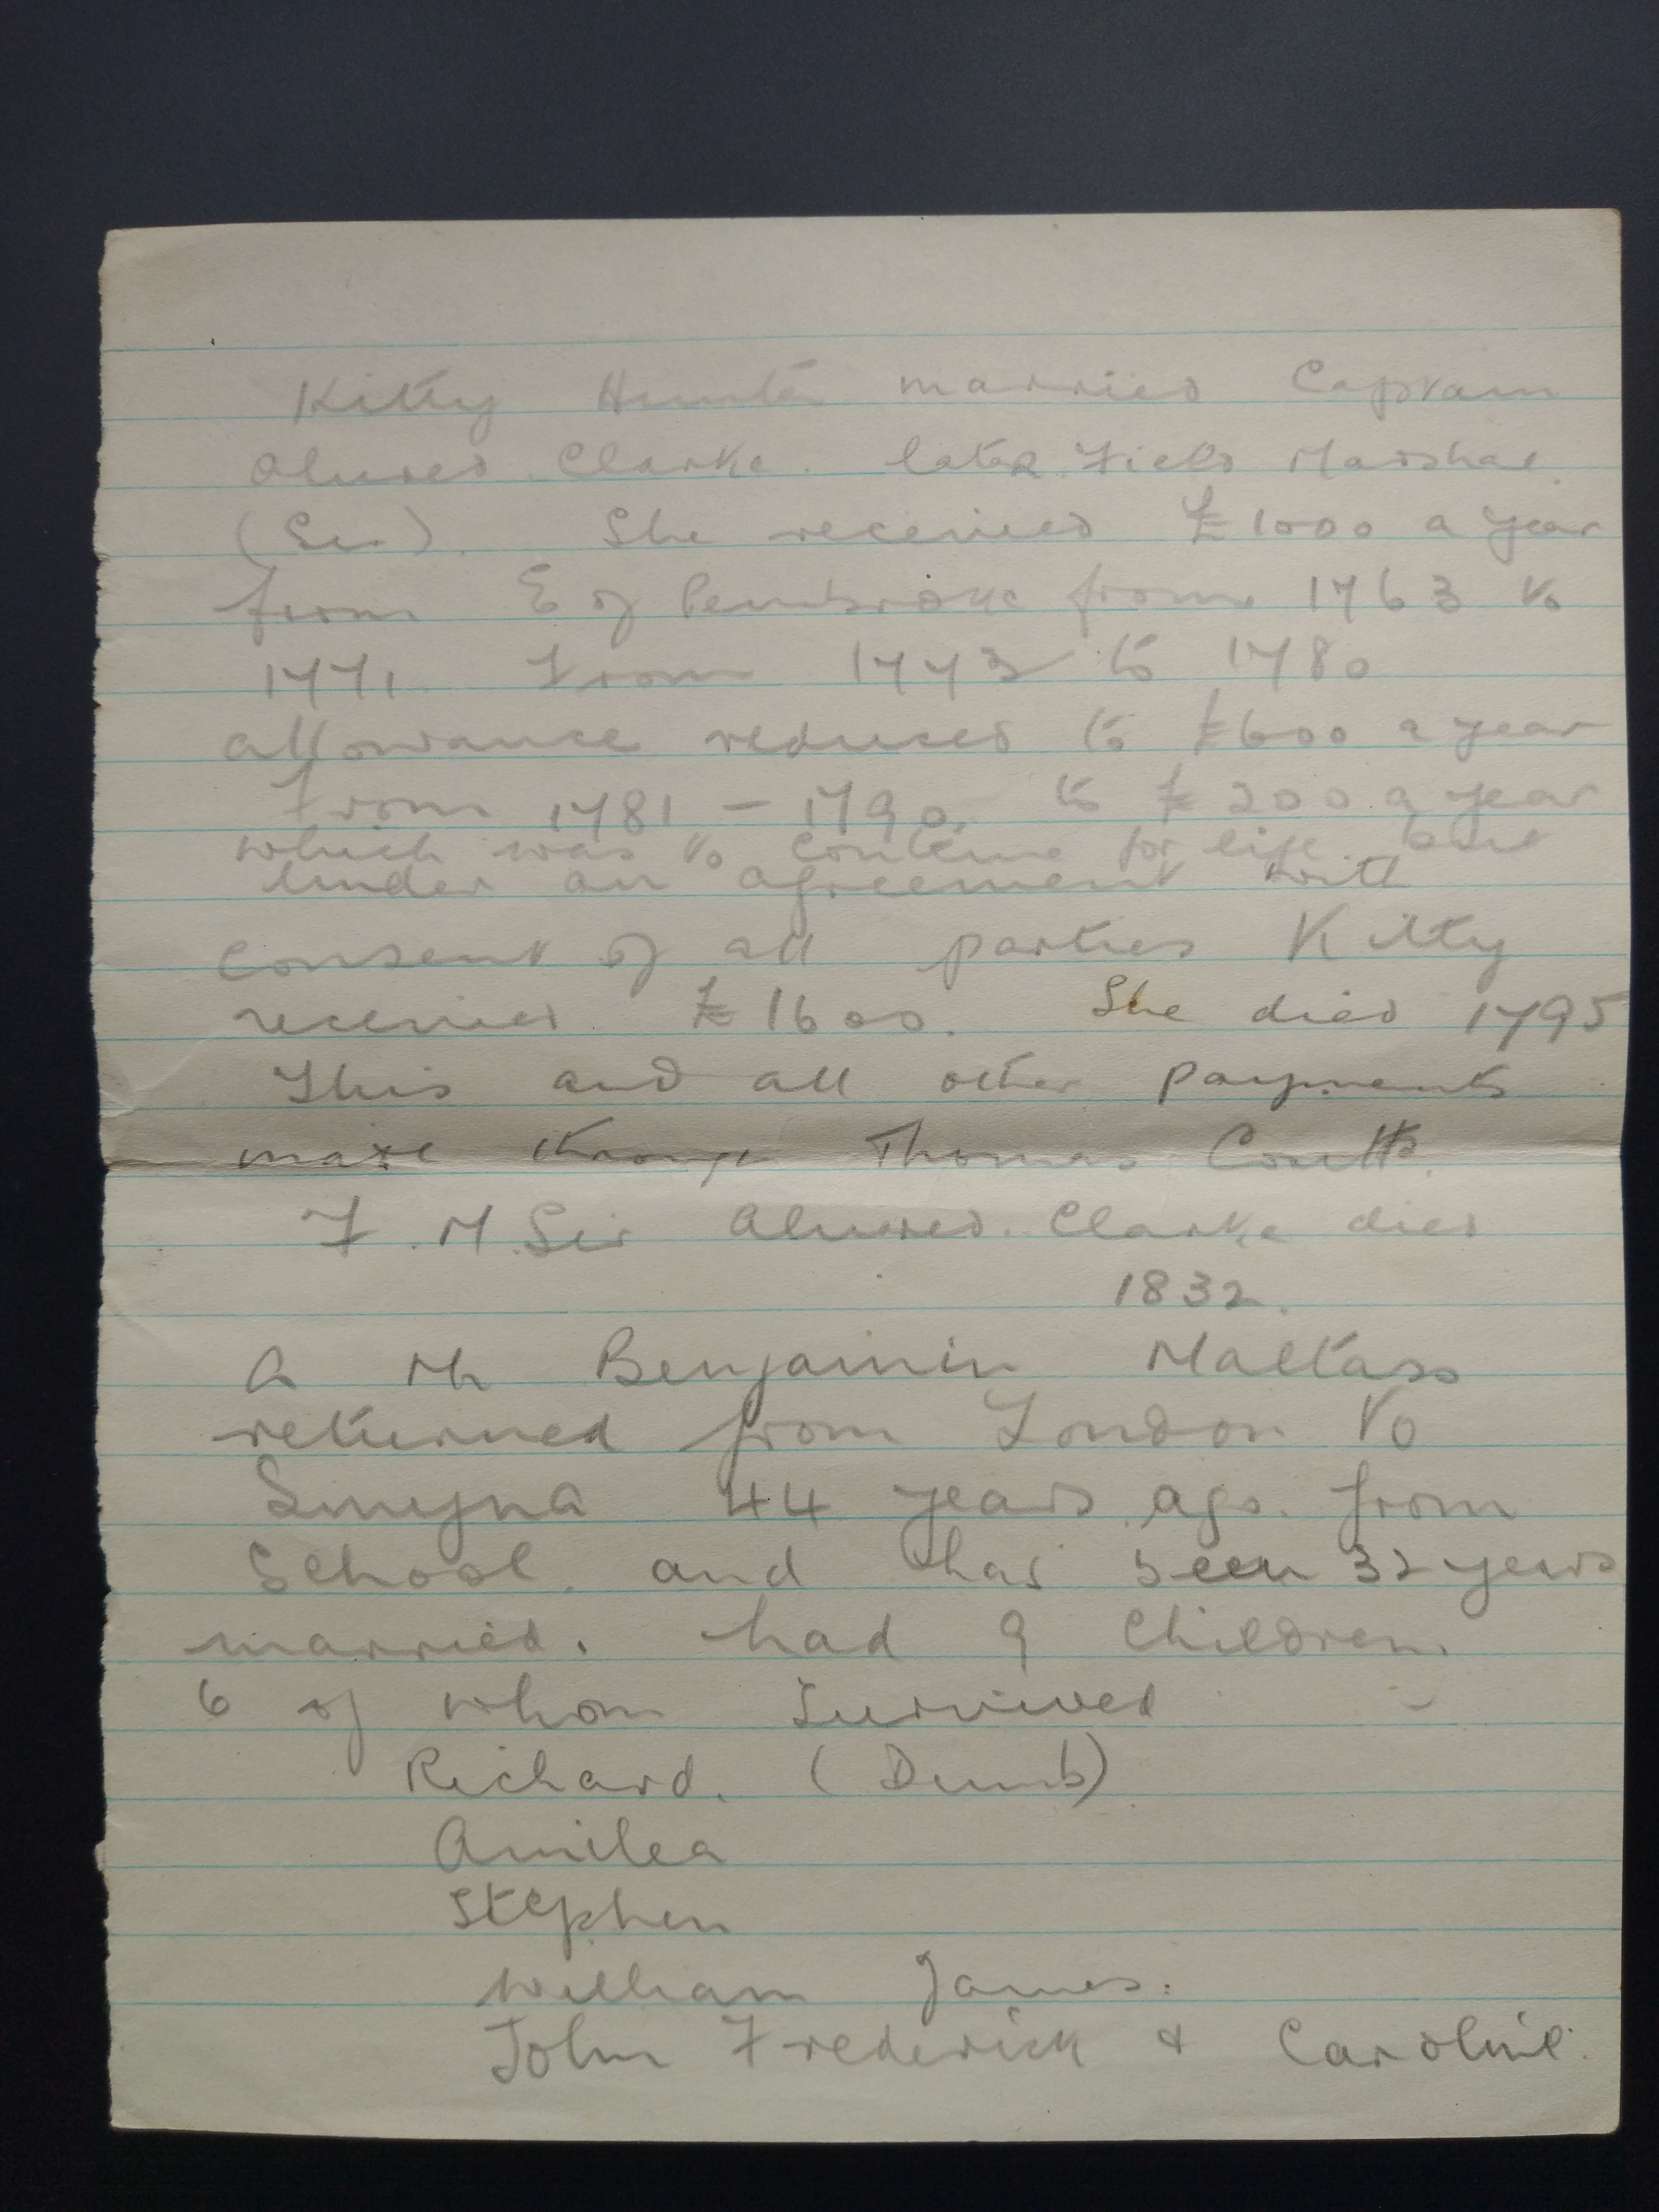 Kitty Hunter married Captain
Alured Clarke. later Field Marshal
(Sir). She received £1000 a year
from E of Pembroke from 1763 to
1771. From 1773 to 1780
allowance reduced to £600 a year
From 1781 - 1790. to £200 a year
which was to continue for life. but
under an agreement with
consent of all parties Kitty
received £1600. She died 1795
This and all other payments
made through Thomas Coutts.
F. M. Sir Alured. Clarke died
1832.
A Mr Benjamin Maltass
returned from London to
Smyrna 44 years ago. from
School. and has been 32 years
married. had 9 Children.
6 of whom survived
Richard. (Dumb)
Amilea
Stephen
William James.
John Frederick & Caroline.